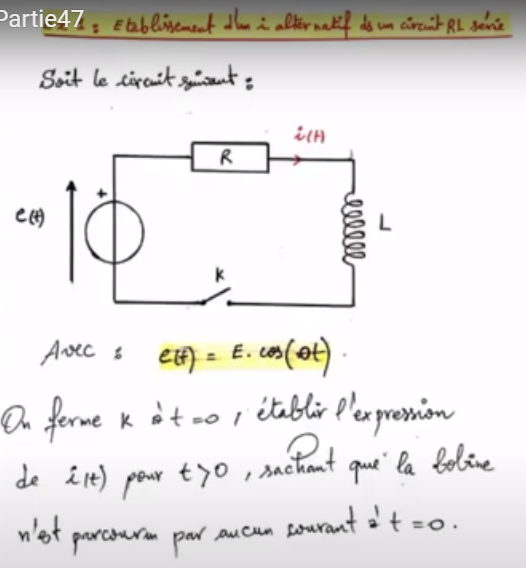 Partie47
: Etablissement d'un i alternatif ds un circuit RL série
Soit le circuit suivant :
i(t)
R
+
e(t)
L
K
Avec : e(t) = E. cos(ωt).
On ferme K à t=0, établir l'expression
de i(t) pour t>0, sachant que la bobine
n'est parcouru par aucun courant à t=0.